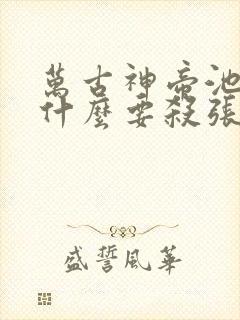 萬古神帝池
什麼要殺張
盛誓風華